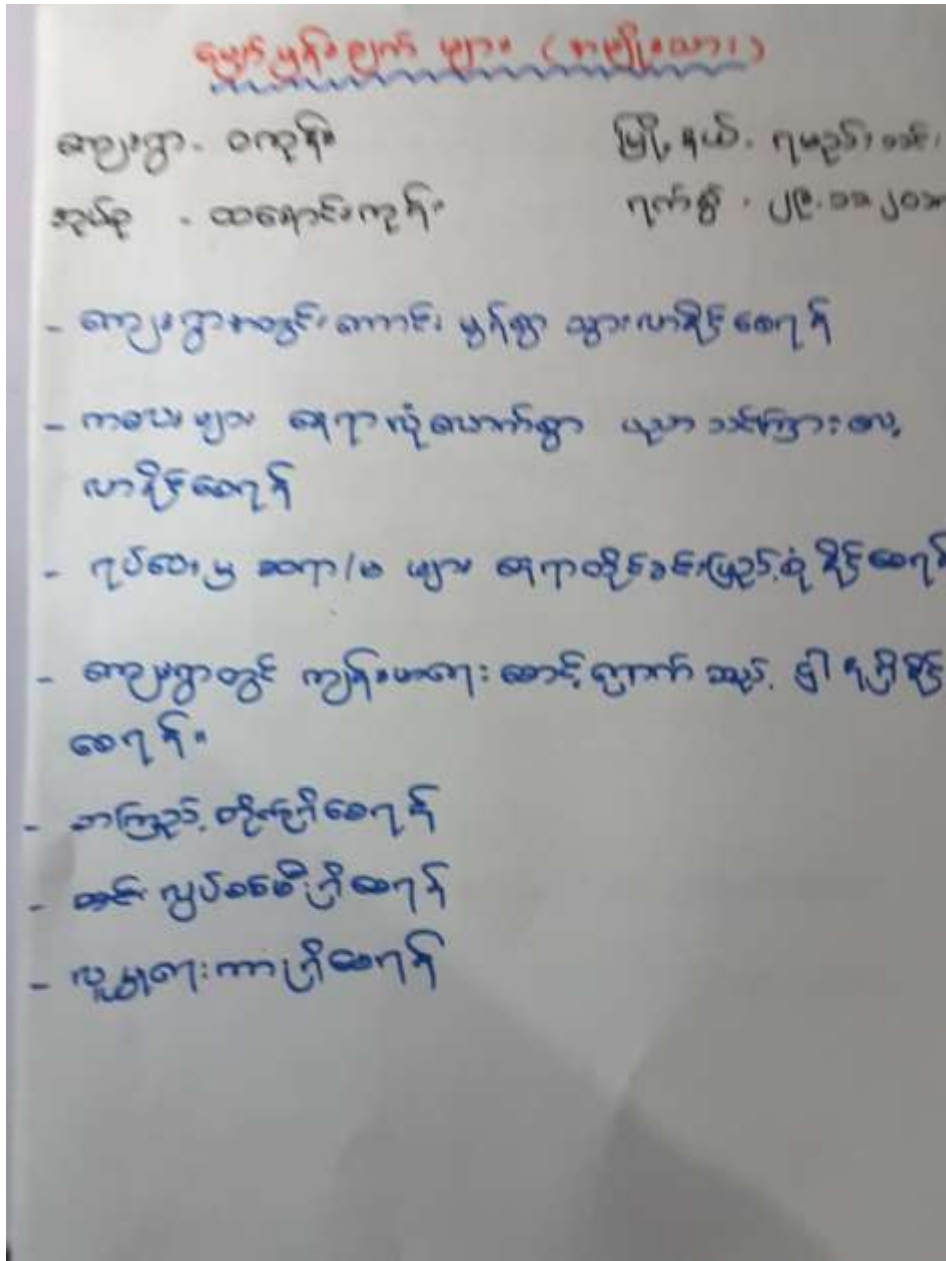 မျှော်မှန်းချက် များ (အမျိုးသား)
ကျေးရွာ - ဝကုန်း မြို့နယ် - ရမည်းသင်း
အုပ်စု - ထရောင်းကုန်း ရက်စွဲ - ၂၉.၁၁.၂၀၁
- ကျေးရွာအတွင်း ကောင်း မွန်စွာ သွားလာနိုင်စေရန်
- ကလေးများ နေရာလုံလောက်စွာ ပညာသင်ကြားလေ့
လာနိုင်စေရန်
- လုပ်အားမှ ဆရာ/မ များ နေရာထိုင်ခင်းပြည့်စုံနိုင်စေရန်
- ကျေးရွာတွင် ကျန်းမာရေး စောင့်ရှောက် သည့် ရှိနိုင်
စေရန်။
- စာကြည့်တိုက်ရှိစေရန်
- လျှပ်စစ်မီးရှိစေရန်
- လူမှုရေးကားရှိစေရန်